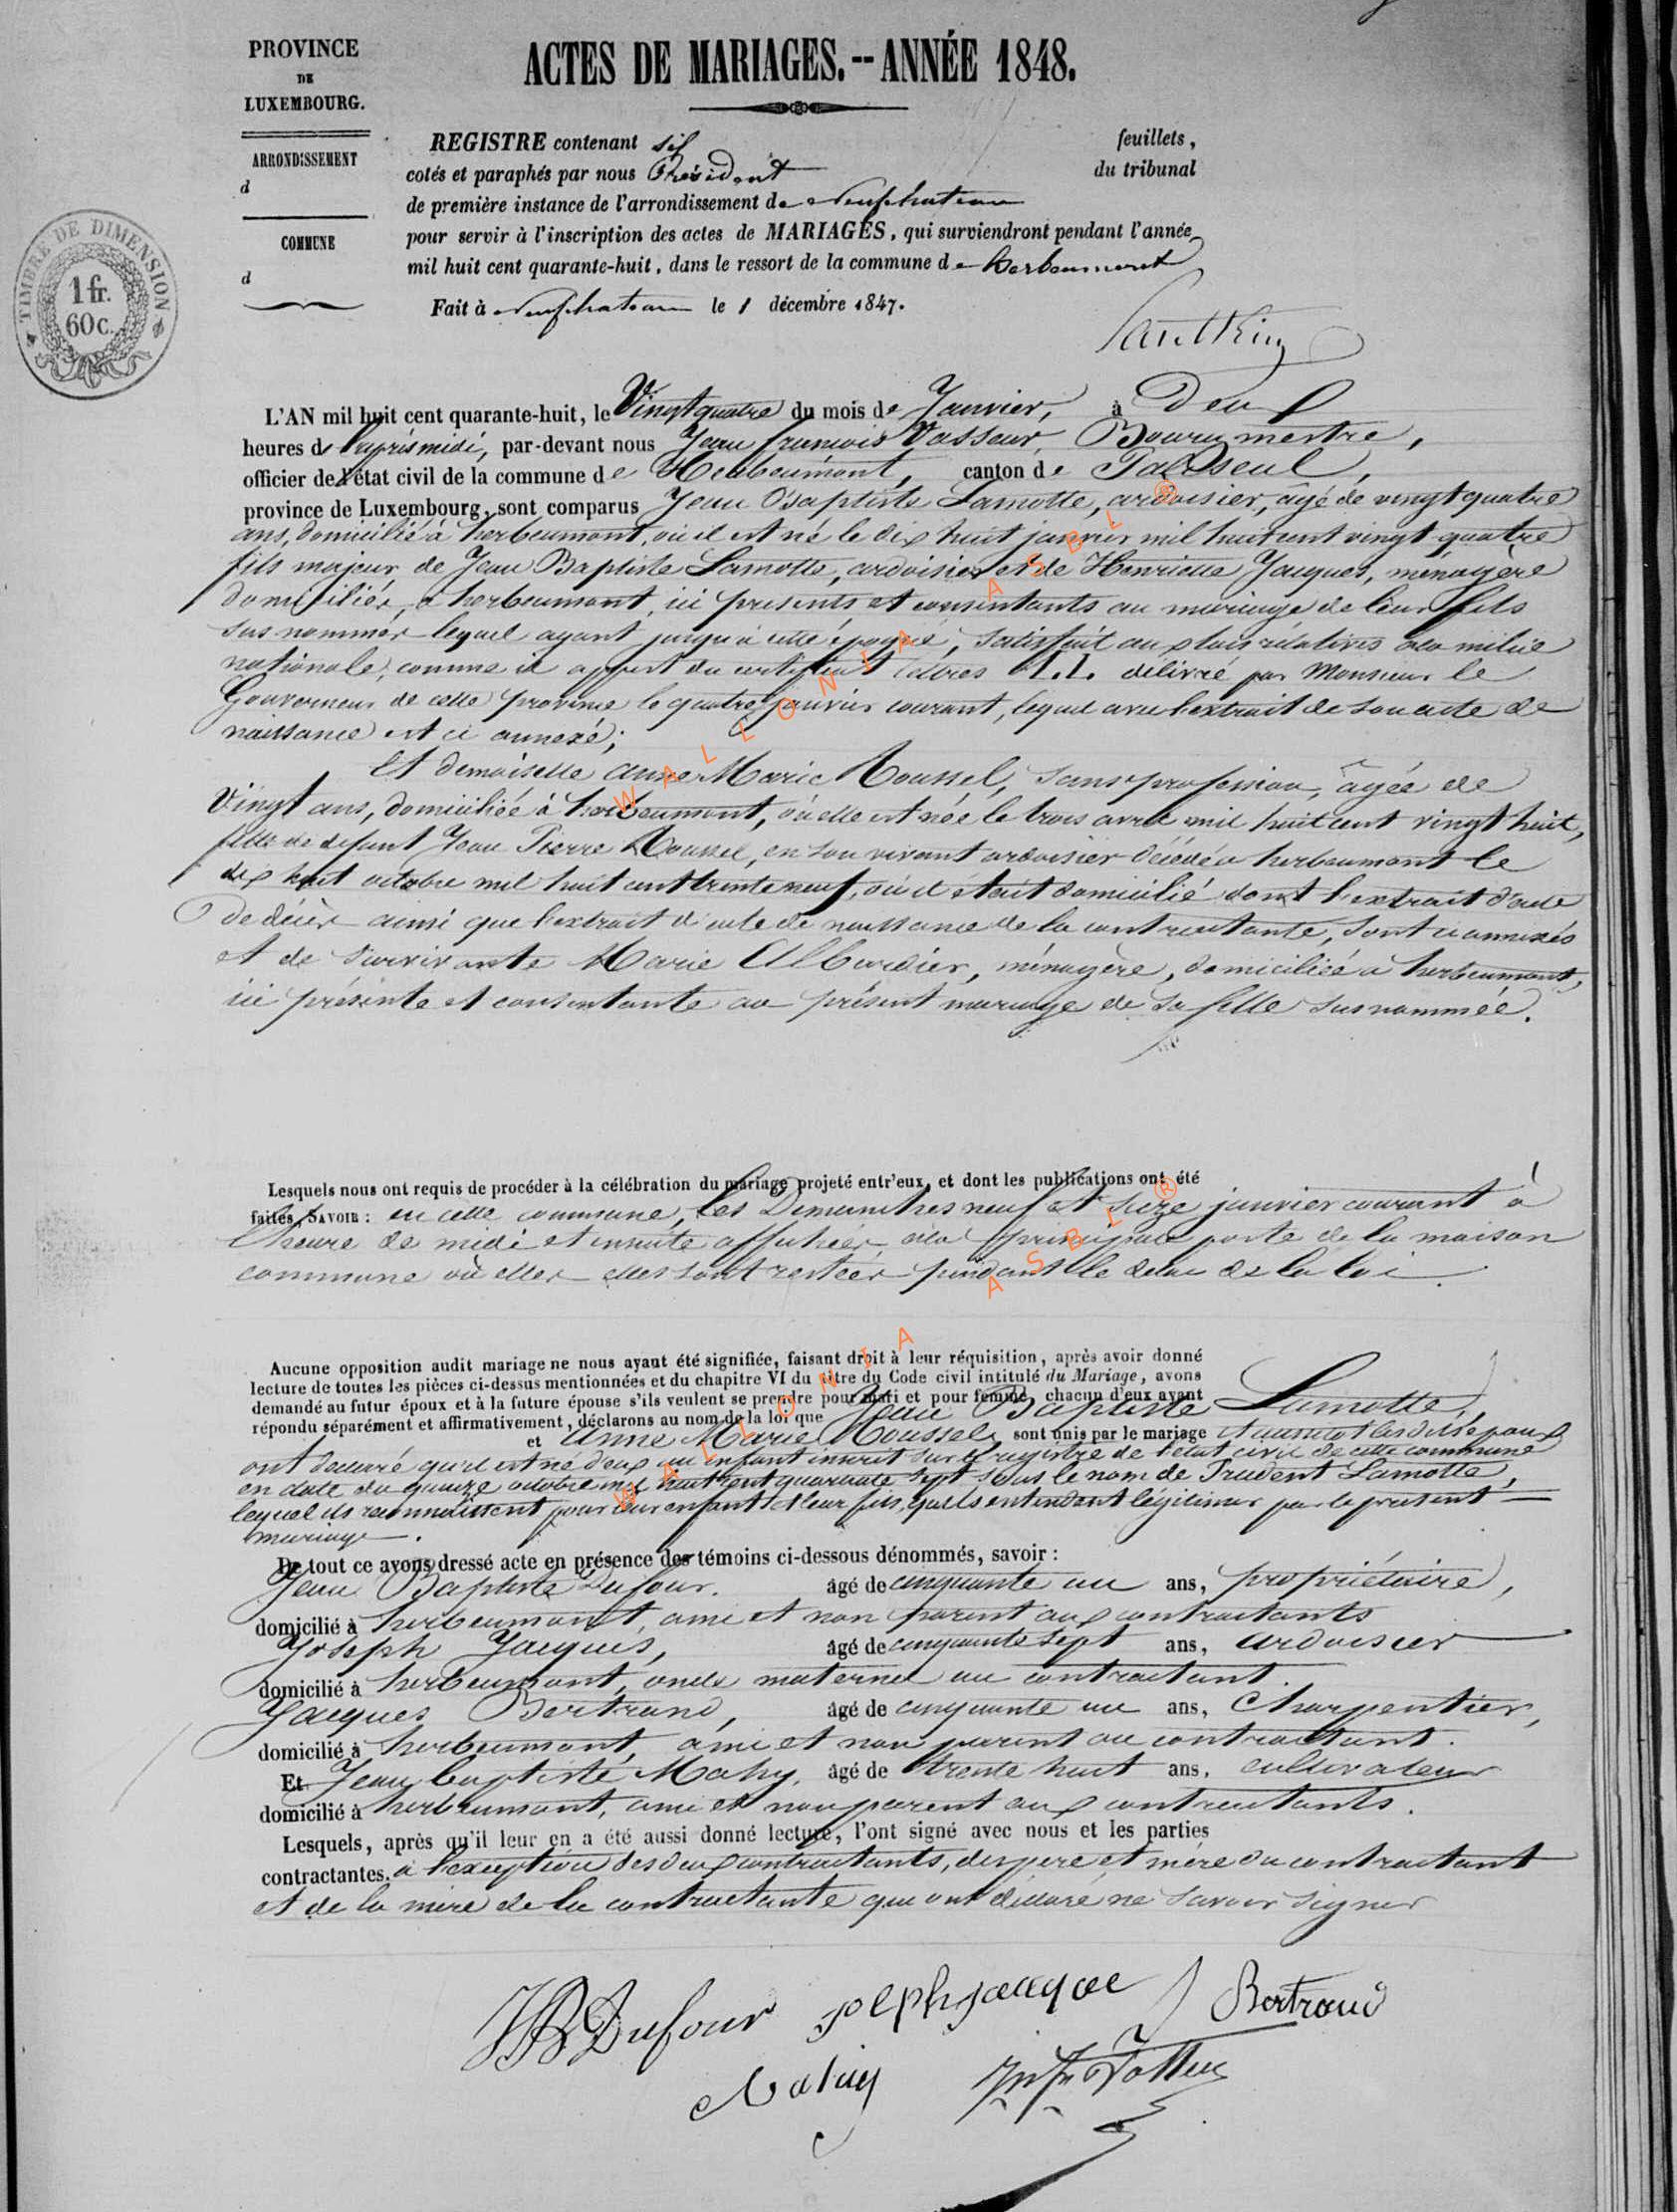 PROVINCE
DE
LUXEMBOURG.
ARRONDISSEMENT
d
COMMUNE
d
TIMBRE DE DIMENSION
1 fr.
60 c.
ACTES DE MARIAGES.--ANNÉE 1848.
REGISTRE contenant six feuillets,
cotés et paraphés par nous Président du tribunal
de première instance de l'arrondissement de Neufchateau
pour servir à l'inscription des actes de MARIAGES, qui surviendront pendant l'année
mil huit cent quarante-huit, dans le ressort de la commune de herbeumont
Fait à Neufchateau le 1 décembre 1847.
L'AN mil huit cent quarante-huit, le Vingt quatre du mois de Janvier, à Deux
heures de l'aprèsmidi, par-devant nous Jean francois Vasseur, Bourgmestre,
officier de l'état civil de la commune de Herbeumont, canton de Paliseul,
province de Luxembourg, sont comparus Jean Baptiste Lamotte, ardoisier, âgé de vingt quatre
ans, domicilié à herbeumont, où il est né le dix huit janvier mil huit cent vingt quatre
fils majeur de Jean Baptiste Lamotte, ardoisier et de Henriette Jacques, ménagère
domiciliés à herbeumont, ici présents et consentants au mariage de leur fils
sus nommés lequel ayant jusqu'à cette époque, satisfait aux lois rélatives à la milice
nationale, comme il appert du certificat délivré par Monsieur le
Gouverneur de cette province le quatre janvier courant, lequel avec l'extrait de son acte de
naissance est ci annexé;
Et demoiselle anne Marie Roussel, sans profession, âgée de
Vingt ans, domiciliée à herbeumont, où elle est née le trois avril mil huit cent vingt huit,
fille de défunt Jean Pierre Roussel, en son vivant ardoisier décédé à herbeumont le
dix huit octobre mil huit cent trente neuf, où il était domicilié dont l'extrait d'acte
de décès ainsi que l'extrait d'acte de naissance de la contractante, sont ci annexés
et de survivante Marie Albardier, ménagère, domiciliée à herbeumont,
ici présente et consentante au présent mariage de sa fille susnommée.
Lesquels nous ont requis de procéder à la célébration du mariage projeté entr'eux, et dont les publications ont été
faites, SAVOIR: en cette commune, les Dimanches neuf et seize janvier courant à
l'heure de midi et ensuite affichées à la principale porte de la maison
commune où elles elles sont restées pendant le délai de la loi.
Aucune opposition audit mariage ne nous ayant été signifiée, faisant droit à leur réquisition, après avoir donné
lecture de toutes les pièces ci-dessus mentionnées et du chapitre VI du titre du Code civil intitulé du Mariage, avons
demandé au futur époux et à la future épouse s'ils veulent se prendre pour mari et pour femme, chacun d'eux ayant
répondu séparément et affirmativement, déclarons au nom de la loi que Jean Baptiste Lamotte,
et Anne Marie Roussel sont unis par le mariage et aussitot lesdits époux
ont déclaré qu'il est né d'eux un enfant inscrit sur le registre de l'état civil de cette commune
en date du quinze octobre mil huit cent quarante sept sous le nom de Prudent Lamotte,
lequel ils reconnaissent pour leur enfant et leur fils, qu'ils entendent légitimer par le présent
mariage.
De tout ce avons dressé acte en présence des témoins ci-dessous dénommés, savoir:
Jean Baptiste Dufour. âgé de cinquante un ans, propriétaire,
domicilié à herbeumont, ami et non parent aux contractants
Joseph Jacques, âgé de cinquante sept ans, ardoisier
domicilié à herbeumont, oncle maternel au contractant.
Jacques Bertrand, âgé de cinquante un ans, Charpentier,
domicilié à herbeumont, ami et non parent au contractant.
Et Jean baptiste Mahy, âgé de trente huit ans, cultivateur
domicilié à herbeumont, ami et non parent aux contractants.
Lesquels, après qu'il leur en a été aussi donné lecture, l'ont signé avec nous et les parties
contractantes. à l'exception des deux contractants, des pere et mère du contractant
et de la mère de la contractante qui ont déclaré ne savoir signer
JB Dufour Joseph jacque J Bertrand
Mahy
WALLONIA ASBL ®
WALLONIA ASBL ®